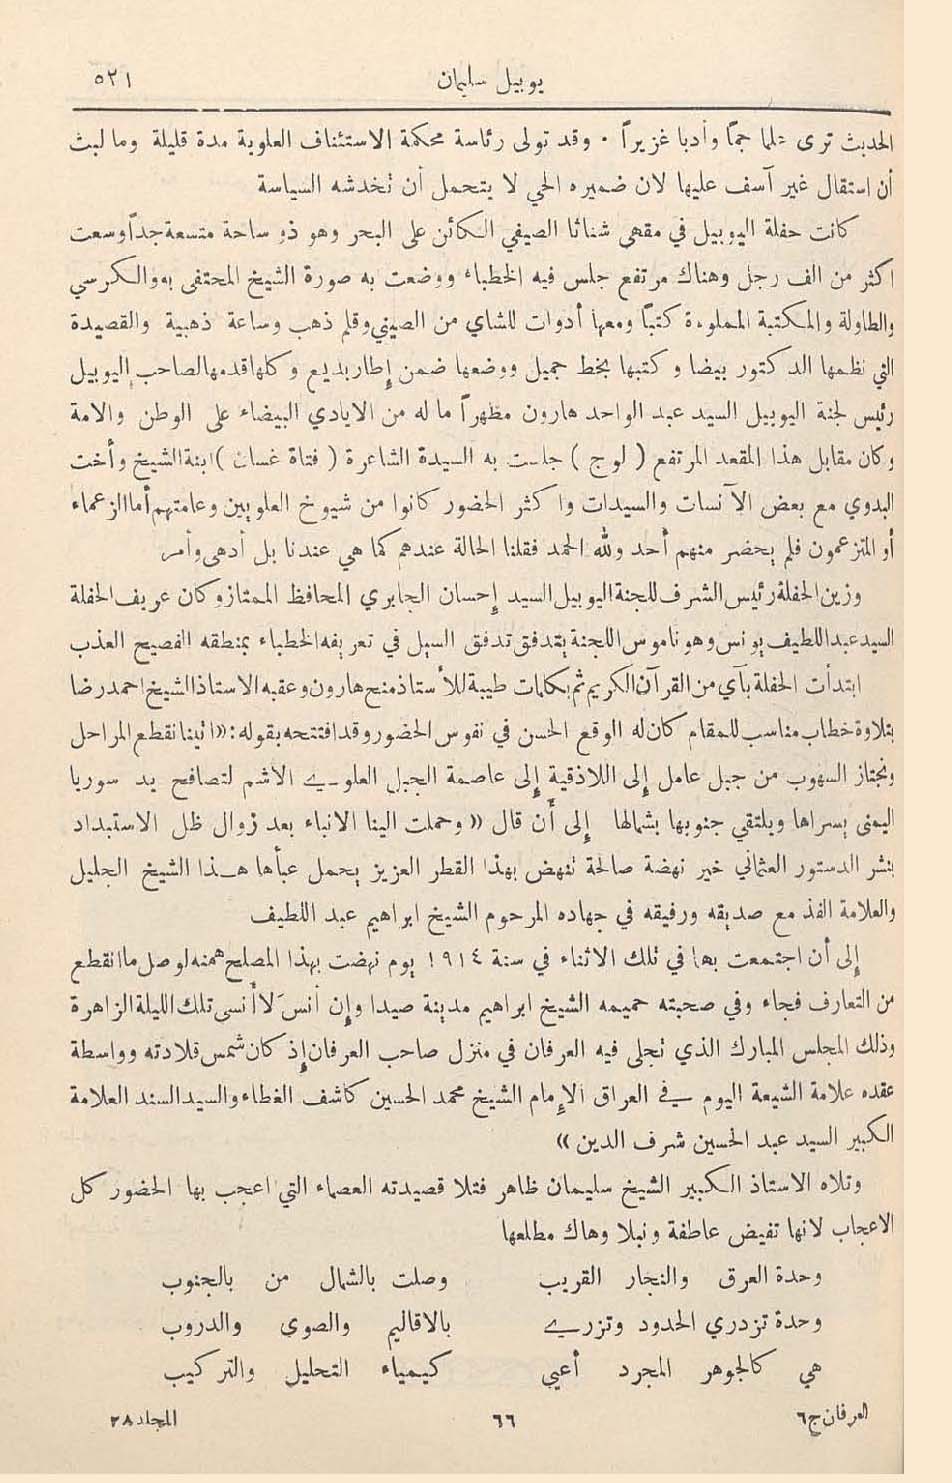 يوبيل سليمان ٥٢١
الحديث ترى علما جمًا وأدبا غزيراً . وقد تولى رئاسة محكمة الاستئناف العلوية مدة قليلة وما لبث
أن استقال غير آسف عليها لان ضميره الحي لا يتحمل أن تخدشه السياسة
كانت حفلة اليوبيل في مقهى شناتا الصيفي الكائن على البحر وهو ذو ساحة متسعة جداً وسعت
اكثر من الف رجل وهناك مرتفع جلس فيه الخطباء ووضعت به صورة الشيخ المحتفى به والكرسي
والطاولة والمكتبة المملوءة كتبًا ومعها أدوات للشاي من الصيني وقلم ذهب وساعة ذهبية والقصيدة
التي نظمها الدكتور بيضا وكتبها بخط جميل ووضعها ضمن إطار بديع وكلها قدمها لصاحب اليوبيل
رئيس لجنة اليوبيل السيد عبد الواحد هارون مظهراً ما له من الايادي البيضاء على الوطن والامة
وكان مقابل هذا المقعد المرتفع ( لوج ) جلست به السيدة الشاعرة ( فتاة غسان ) ابنة الشيخ وأخت
البدوي مع بعض الآنسات والسيدات واكثر الحضور كانوا من شيوخ العلويين وعامتهم أما الزعماء
أو المتزعمون فلم يحضر منهم أحد ولله الحمد فقلنا الحالة عندهم كما هي عندنا بل أدهى وأمر
وزين الحفلة رئيس الشرف للجنة اليوبيل السيد إحسان الجابري المحافظ الممتاز وكان عريف الحفلة
السيد عبد اللطيف يونس وهو ناموس اللجنة يتدفق تدفق السيل في تعريفه الخطباء بمنطقه الفصيح العذب
ابتدأت الحفلة بآي من القرآن الكريم ثم بكلمات طيبة للأستاذ منح هارون وعقبه الاستاذ الشيخ احمد رضا
بتلاوة خطاب مناسب للمقام كان له الوقع الحسن في نفوس الحضور وقد افتتحه بقوله : «اتينا نقطع المراحل
ونجتاز السهوب من جبل عامل إلى اللاذقية إلى عاصمة الجبل العلوي الأشم لتصافح يد سوريا
اليمنى يسراها ويلتقي جنوبها بشمالها إلى أن قال « وحملت الينا الانباء بعد زوال ظل الاستبداد
بنشر الدستور العثماني خير نهضة صالحة تنهض بهذا القطر العزيز يحمل عبأها هذا الشيخ الجليل
والعلامة الفذ مع صديقه ورفيقه في جهاده المرحوم الشيخ ابراهيم عبد اللطيف
إلى أن اجتمعت بها في تلك الاثناء في سنة ١٩١٤ يوم نهضت بهذا المصلح همته لوصل ما انقطع
من التعارف فجاء وفي صحبته حميمه الشيخ ابراهيم مدينة صيدا وإن أنسَ لا أنسى تلك الليلة الزاهرة
وذلك المجلس المبارك الذي تجلى فيه العرفان في منزل صاحب العرفان إذ كان شمس قلادته وواسطة
عقده علامة الشيعة اليوم في العراق الإمام الشيخ محمد الحسين كاشف الغطاء والسيد السند العلامة
الكبير السيد عبد الحسين شرف الدين »
وتلاه الاستاذ الكبير الشيخ سليمان ظاهر فتلا قصيدته العصماء التي اعجب بها الحضور كل
الاعجاب لانها تفيض عاطفة ونبلا وهاك مطلعها
وحدة العرق والنجار القريب وصلت بالشمال من بالجنوب
وحدة تزدري الحدود وتزري بالاقاليم والصوى والدروب
هي كالجوهر المجرد أعيي كيمياء التحليل والتركيب
العرفان ج٦ ٦٦ المجلد ٢٨